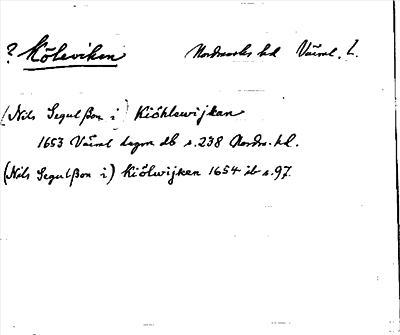 ? Köleviken Nordmarks hd Värml. L.
(Nils Segulßon i) Kiöhlewijkan
1653 Värml lagm db s. 238 Nordm. hd.
(Nils Segulßon i) Kiölwijken 1654 ib s. 97.